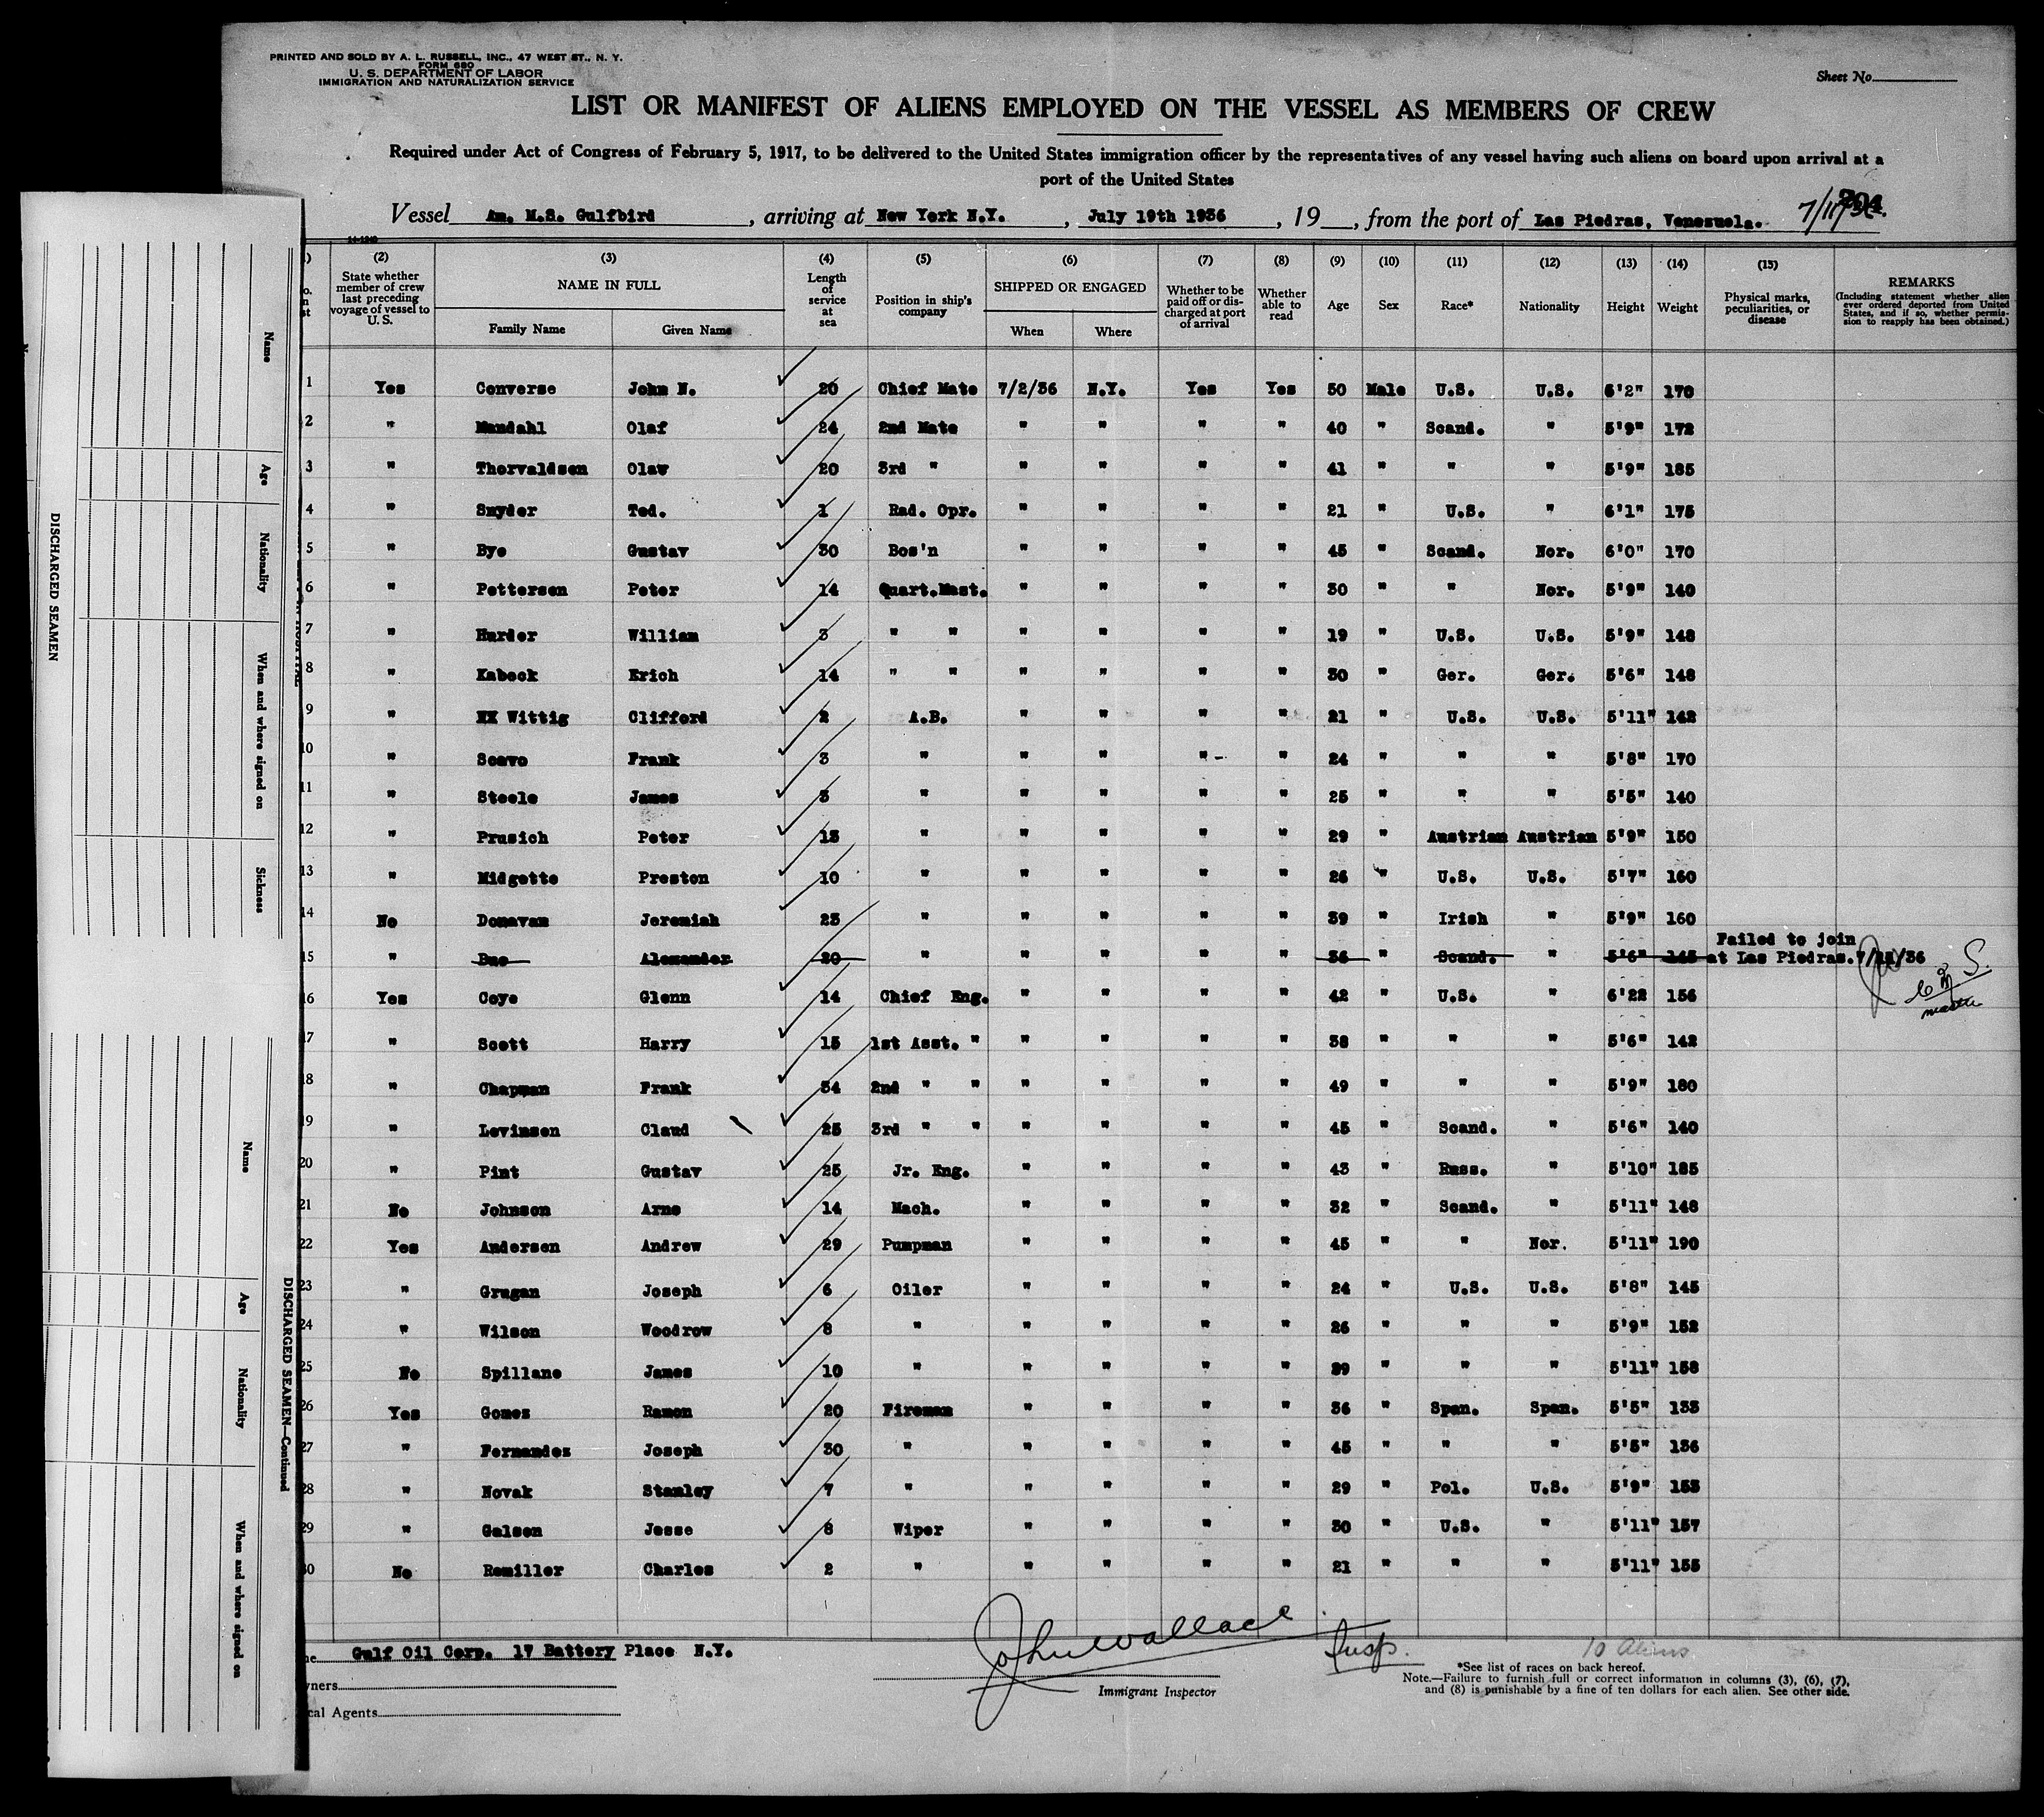 PRINTED AND SOLD BY A. L. RUSSELL, INC., 47 WEST ST., N. Y.
FORM 680
U. S. DEPARTMENT OF LABOR
IMMIGRATION AND NATURALIZATION SERVICE
Sheet No.
LIST OR MANIFEST OF ALIENS EMPLOYED ON THE VESSEL AS MEMBERS OF CREW
Required under Act of Congress of February 5, 1917, to be delivered to the United States immigration officer by the representatives of any vessel having such aliens on board upon arrival at a
port of the United States
Vessel Am. M.S. Gulfbird, arriving at New York N.Y., July 19th 1936, 19__, from the port of Las Piedras, Venezuela.
(2) (3) (4) (5) (6) (7) (8) (9) (10) (11) (12) (13) (14) (15)
State whether member of crew last preceding voyage of vessel to U. S. | NAME IN FULL | Family Name | Given Name | Length of service at sea | Position in ship's company | SHIPPED OR ENGAGED | When | Where | Whether to be paid off or discharged at port of arrival | Whether able to read | Age | Sex | Race* | Nationality | Height | Weight | Physical marks, peculiarities, or disease | REMARKS (Including statement whether alien ever ordered deported from United States, and if so, whether permission to reapply has been obtained.)
1 Yes Converse John N. 20 Chief Mate 7/2/36 N.Y. Yes Yes 50 Male U.S. U.S. 6'2" 170
2 " Mandahl Olaf 24 2nd Mate " " " " 40 " Scand. " 5'9" 172
3 " Thorvaldsen Olav 20 3rd " " " " " 41 " " " 5'9" 185
4 " Snyder Ted. 1 Rad. Opr. " " " " 21 " U.S. " 6'1" 175
5 " Bye Gustav 30 Bos'n " " " " 45 " Scand. Nor. 6'0" 170
6 " Pettersen Peter 14 Quart.Mast. " " " " 30 " " Nor. 5'9" 140
7 " Harder William 3 " " " " " " 19 " U.S. U.S. 5'9" 148
8 " Kabeck Erich 14 " " " " " " 30 " Ger. Ger. 5'6" 148
9 " Wittig Clifford 2 A.B. " " " " 21 " U.S. U.S. 5'11" 142
10 " Scavo Frank 3 " " " " " 24 " " " 5'8" 170
11 " Steele James 3 " " " " " 25 " " " 5'5" 140
12 " Prusich Peter 13 " " " " " 29 " Austrian Austrian 5'9" 150
13 " Midgette Preston 10 " " " " " 26 " U.S. U.S. 5'7" 160
14 No Donavan Jeremiah 23 " " " " " 39 " Irish " 5'9" 160
15 " Due Alexander 20 " " " " " 36 " Scand. " 5'6" 145 Failed to join
at Las Piedras.
16 Yes Coye Glenn 14 Chief Eng. " " " " 42 " U.S. " 6'22 156
master
17 " Scott Harry 15 1st Asst. " " " " " 38 " " " 5'6" 142
18 " Chapman Frank 34 2nd " " " " " " 49 " " " 5'9" 180
19 " Levinsen Claud 25 3rd " " " " " " 45 " Scand. " 5'6" 140
20 " Pint Gustav 25 Jr. Eng. " " " " 43 " Russ. " 5'10" 185
21 No Johnson Arne 14 Mach. " " " " 32 " Scand. " 5'11" 148
22 Yes Andersen Andrew 29 Pumpman " " " " 45 " " Nor. 5'11" 190
23 " Grugan Joseph 6 Oiler " " " " 24 " U.S. U.S. 5'8" 145
24 " Wilson Woodrow 8 " " " " " 26 " " " 5'9" 152
25 No Spillane James 10 " " " " " 39 " " " 5'11" 158
26 Yes Gomez Ramon 20 Fireman " " " " 36 " Span. Span. 5'5" 133
27 " Fernandez Joseph 30 " " " " " 45 " " " 5'5" 136
28 " Novak Stanley 7 " " " " " 29 " Pol. U.S. 5'9" 153
29 " Galsen Jesse 8 Wiper " " " " 30 " U.S. " 5'11" 157
30 No Remiller Charles 2 " " " " " 21 " " " 5'11" 155
Gulf Oil Corp. 17 Battery Place N.Y.
John Wallace Insp.
10 Aliens
Immigrant Inspector
*See list of races on back hereof.
Note.—Failure to furnish full or correct information in columns (3), (6), (7),
and (8) is punishable by a fine of ten dollars for each alien. See other side.
DISCHARGED SEAMEN
Name
Age
Nationality
When and where signed on
Sickness
DISCHARGED SEAMEN—Continued
Name
Age
Nationality
When and where signed on